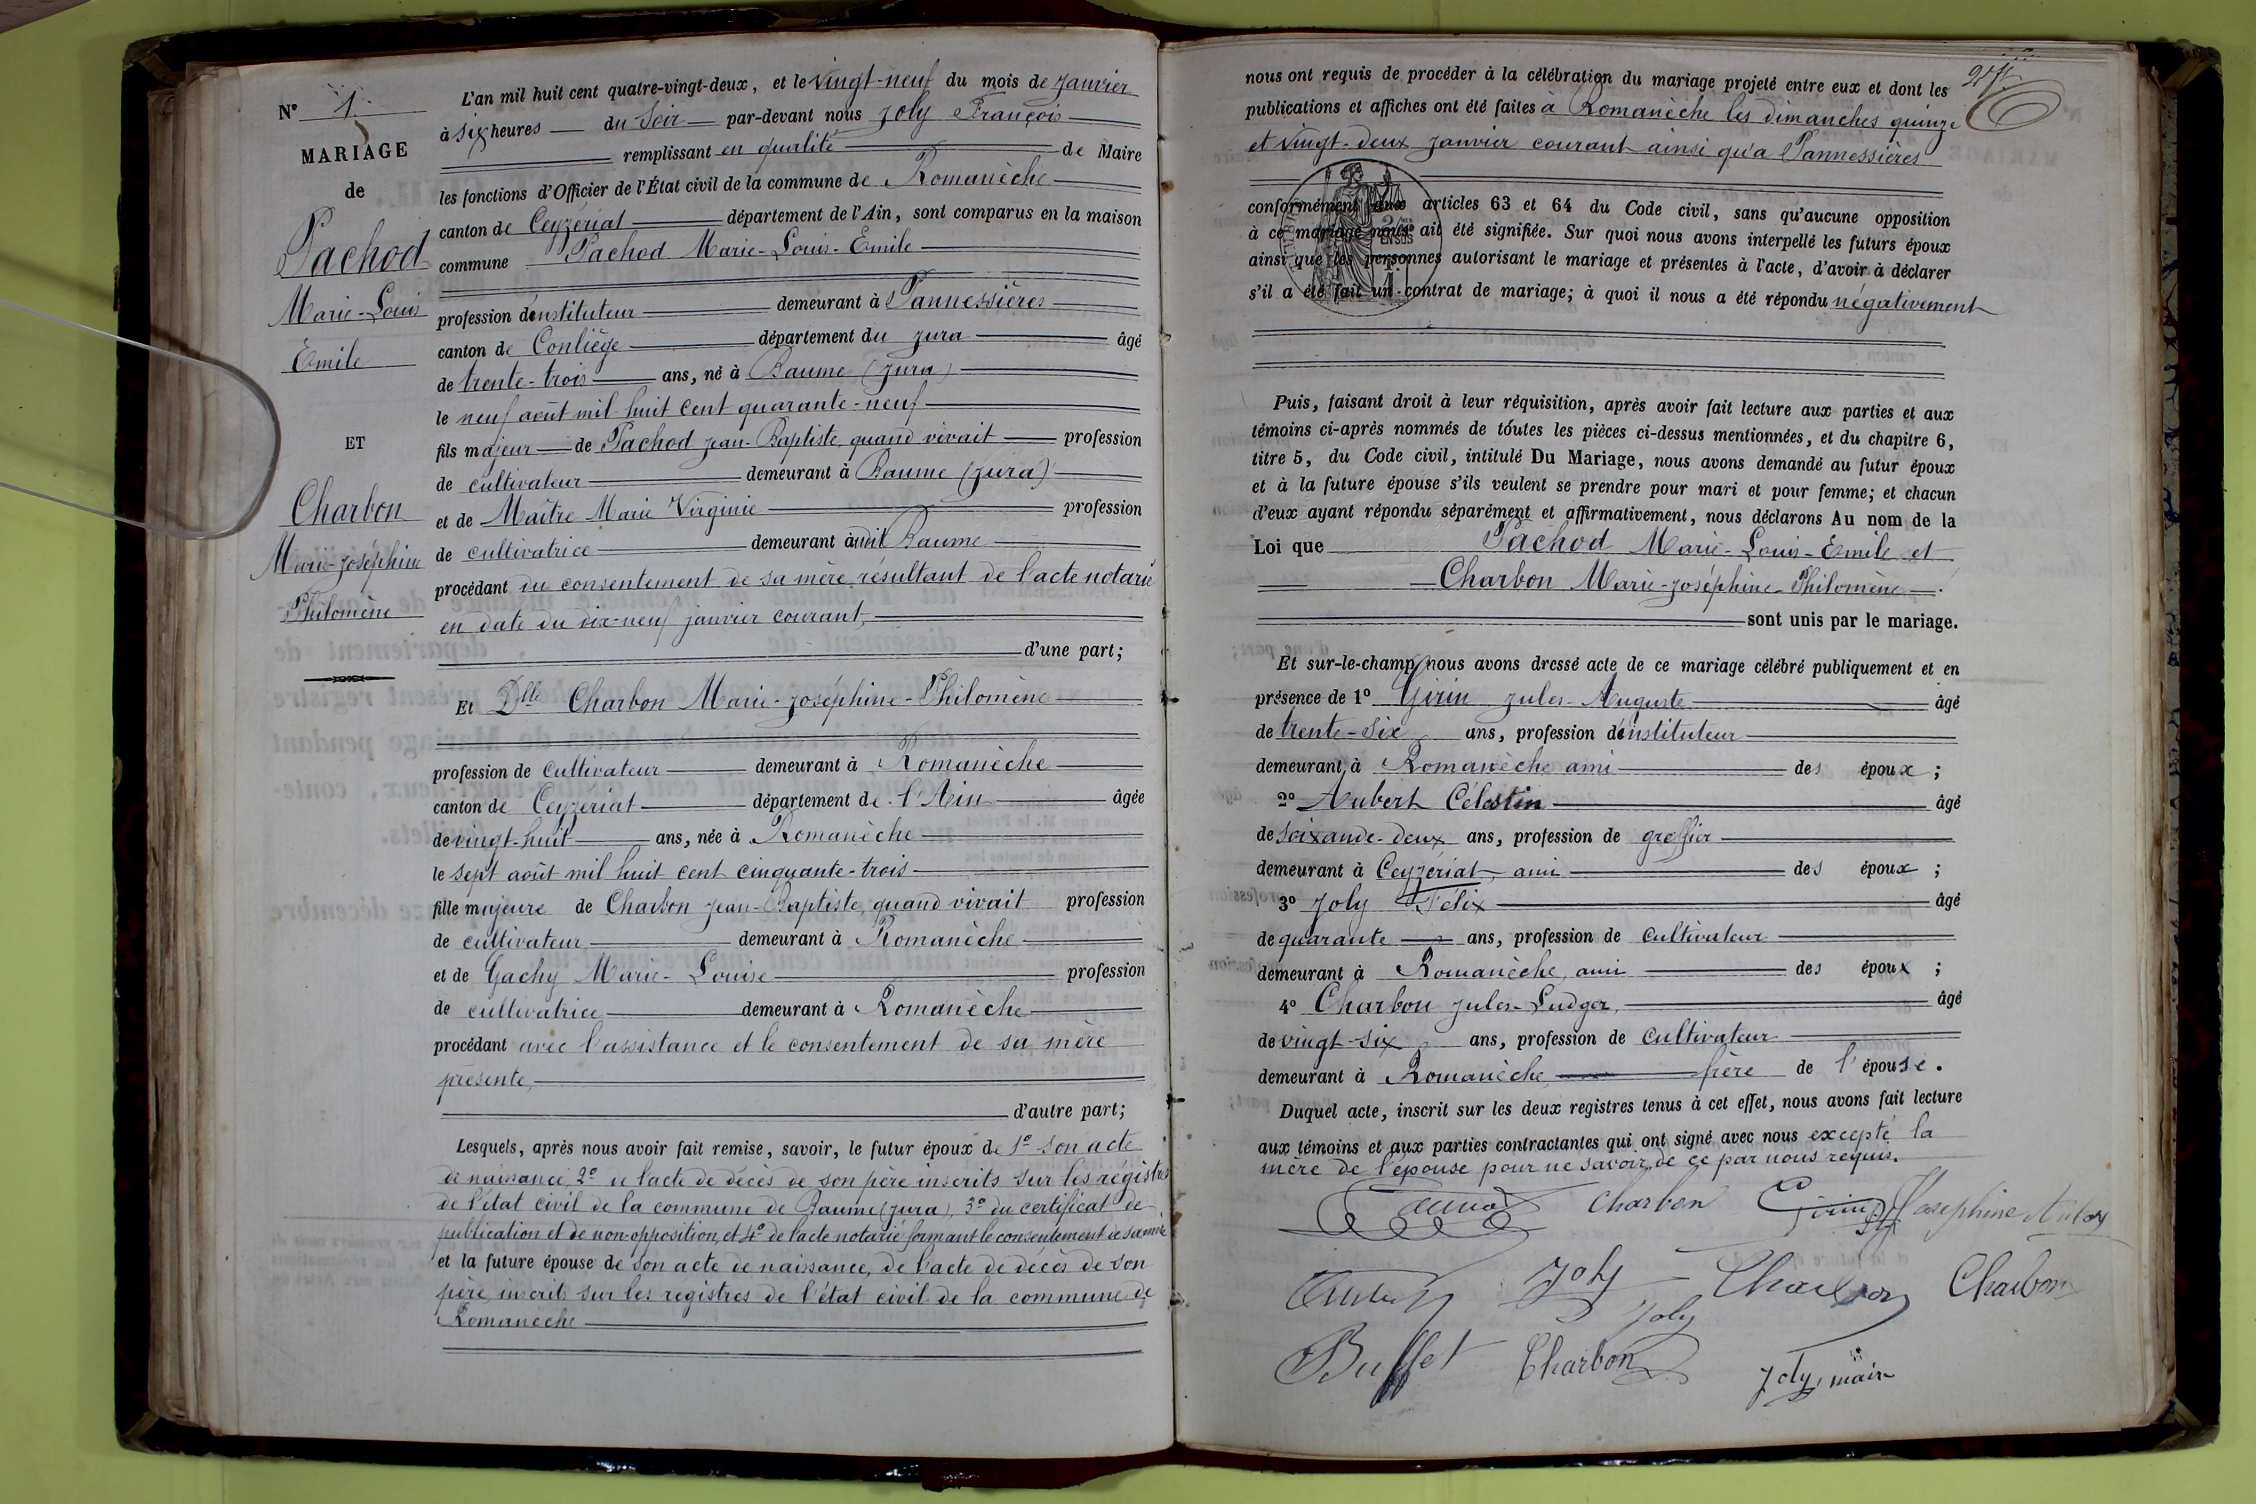 N° 1.
MARIAGE
de
Pachod
Marie-Louis
Emile
ET
Charbon
Marie-Joséphine
Philomène
L'an mil huit cent quatre-vingt-deux, et le vingt-neuf du mois de janvier
à six heures du soir par-devant nous Joly François
remplissant en qualité de Maire
les fonctions d'Officier de l'État civil de la commune de Romanèche
canton de Ceyzériat département de l'Ain, sont comparus en la maison
commune Pachod Marie-Louis-Emile
profession d'instituteur demeurant à Pannessières
canton de Conliège département du Jura âgé
de trente-trois ans, né à Baume (Jura)
le neuf août mil huit cent quarante-neuf
fils majeur de Pachod Jean-Baptiste, quand vivait profession
de cultivateur demeurant à Baume (Jura)
et de Maître Marie Virginie profession
de cultivatrice demeurant audit Baume
procédant du consentement de sa mère résultant de l'acte notarié
en date du dix-neuf janvier courant,
d'une part;
Et Dlle Charbon Marie-Joséphine-Philomène
profession de cultivateur demeurant à Romanèche
canton de Ceyzériat département de l'Ain âgée
de vingt-huit ans, née à Romanèche
le sept août mil huit cent cinquante-trois
fille majeure de Charbon Jean-Baptiste, quand vivait profession
de cultivateur demeurant à Romanèche
et de Gachy Marie-Louise profession
de cultivatrice demeurant à Romanèche
procédant avec l'assistance et le consentement de sa mère
présente,
d'autre part;
Lesquels, après nous avoir fait remise, savoir, le futur époux de 1° son acte
de naissance, 2° de l'acte de décès de son père inscrits sur les régistres
de l'état civil de la commune de Baume (Jura), 3° du certificat de
publication et de non-opposition, et 4° de l'acte notarié formant le consentement de sa mère
et la future épouse de son acte de naissance, de l'acte de décès de son
père inscrits sur les registres de l'état civil de la commune de
Romanèche
nous ont requis de procéder à la célébration du mariage projeté entre eux et dont les
publications et affiches ont été faites à Romanèche les dimanches quinze
et vingt-deux janvier courant ainsi qu'à Pannessières
conformément aux articles 63 et 64 du Code civil, sans qu'aucune opposition
à ce mariage nous ait été signifiée. Sur quoi nous avons interpellé les futurs époux
ainsi que les personnes autorisant le mariage et présentes à l'acte, d'avoir à déclarer
s'il a été fait un contrat de mariage; à quoi il nous a été répondu négativement
Puis, faisant droit à leur réquisition, après avoir fait lecture aux parties et aux
témoins ci-après nommés de toutes les pièces ci-dessus mentionnées, et du chapitre 6,
titre 5, du Code civil, intitulé Du Mariage, nous avons demandé au futur époux
et à la future épouse s'ils veulent se prendre pour mari et pour femme; et chacun
d'eux ayant répondu séparément et affirmativement, nous déclarons Au nom de la
Loi que Pachod Marie-Louis-Emile et
Charbon Marie-Joséphine-Philomène
sont unis par le mariage.
Et sur-le-champ nous avons dressé acte de ce mariage célébré publiquement et en
présence de 1° Girin Jules-Auguste âgé
de trente-six ans, profession d'instituteur
demeurant à Romanèche ami des époux;
2° Aubert Célestin âgé
de soixande-deux ans, profession de greffier
demeurant à Ceyzériat, ami des époux;
3° Joly Félix âgé
de quarante ans, profession de cultivateur
demeurant à Romanèche, ami des époux;
4° Charbon Jules-Ludger, âgé
de vingt-six ans, profession de cultivateur
demeurant à Romanèche, frère de l'épouse.
Duquel acte, inscrit sur les deux registres tenus à cet effet, nous avons fait lecture
aux témoins et aux parties contractantes qui ont signé avec nous excepté la
mère de l'épouse pour ne savoir, de ce par nous requis.
Charbon Girin Josephine
Joly Charbon Charbon
Joly
Buffet Charbon Joly, maire